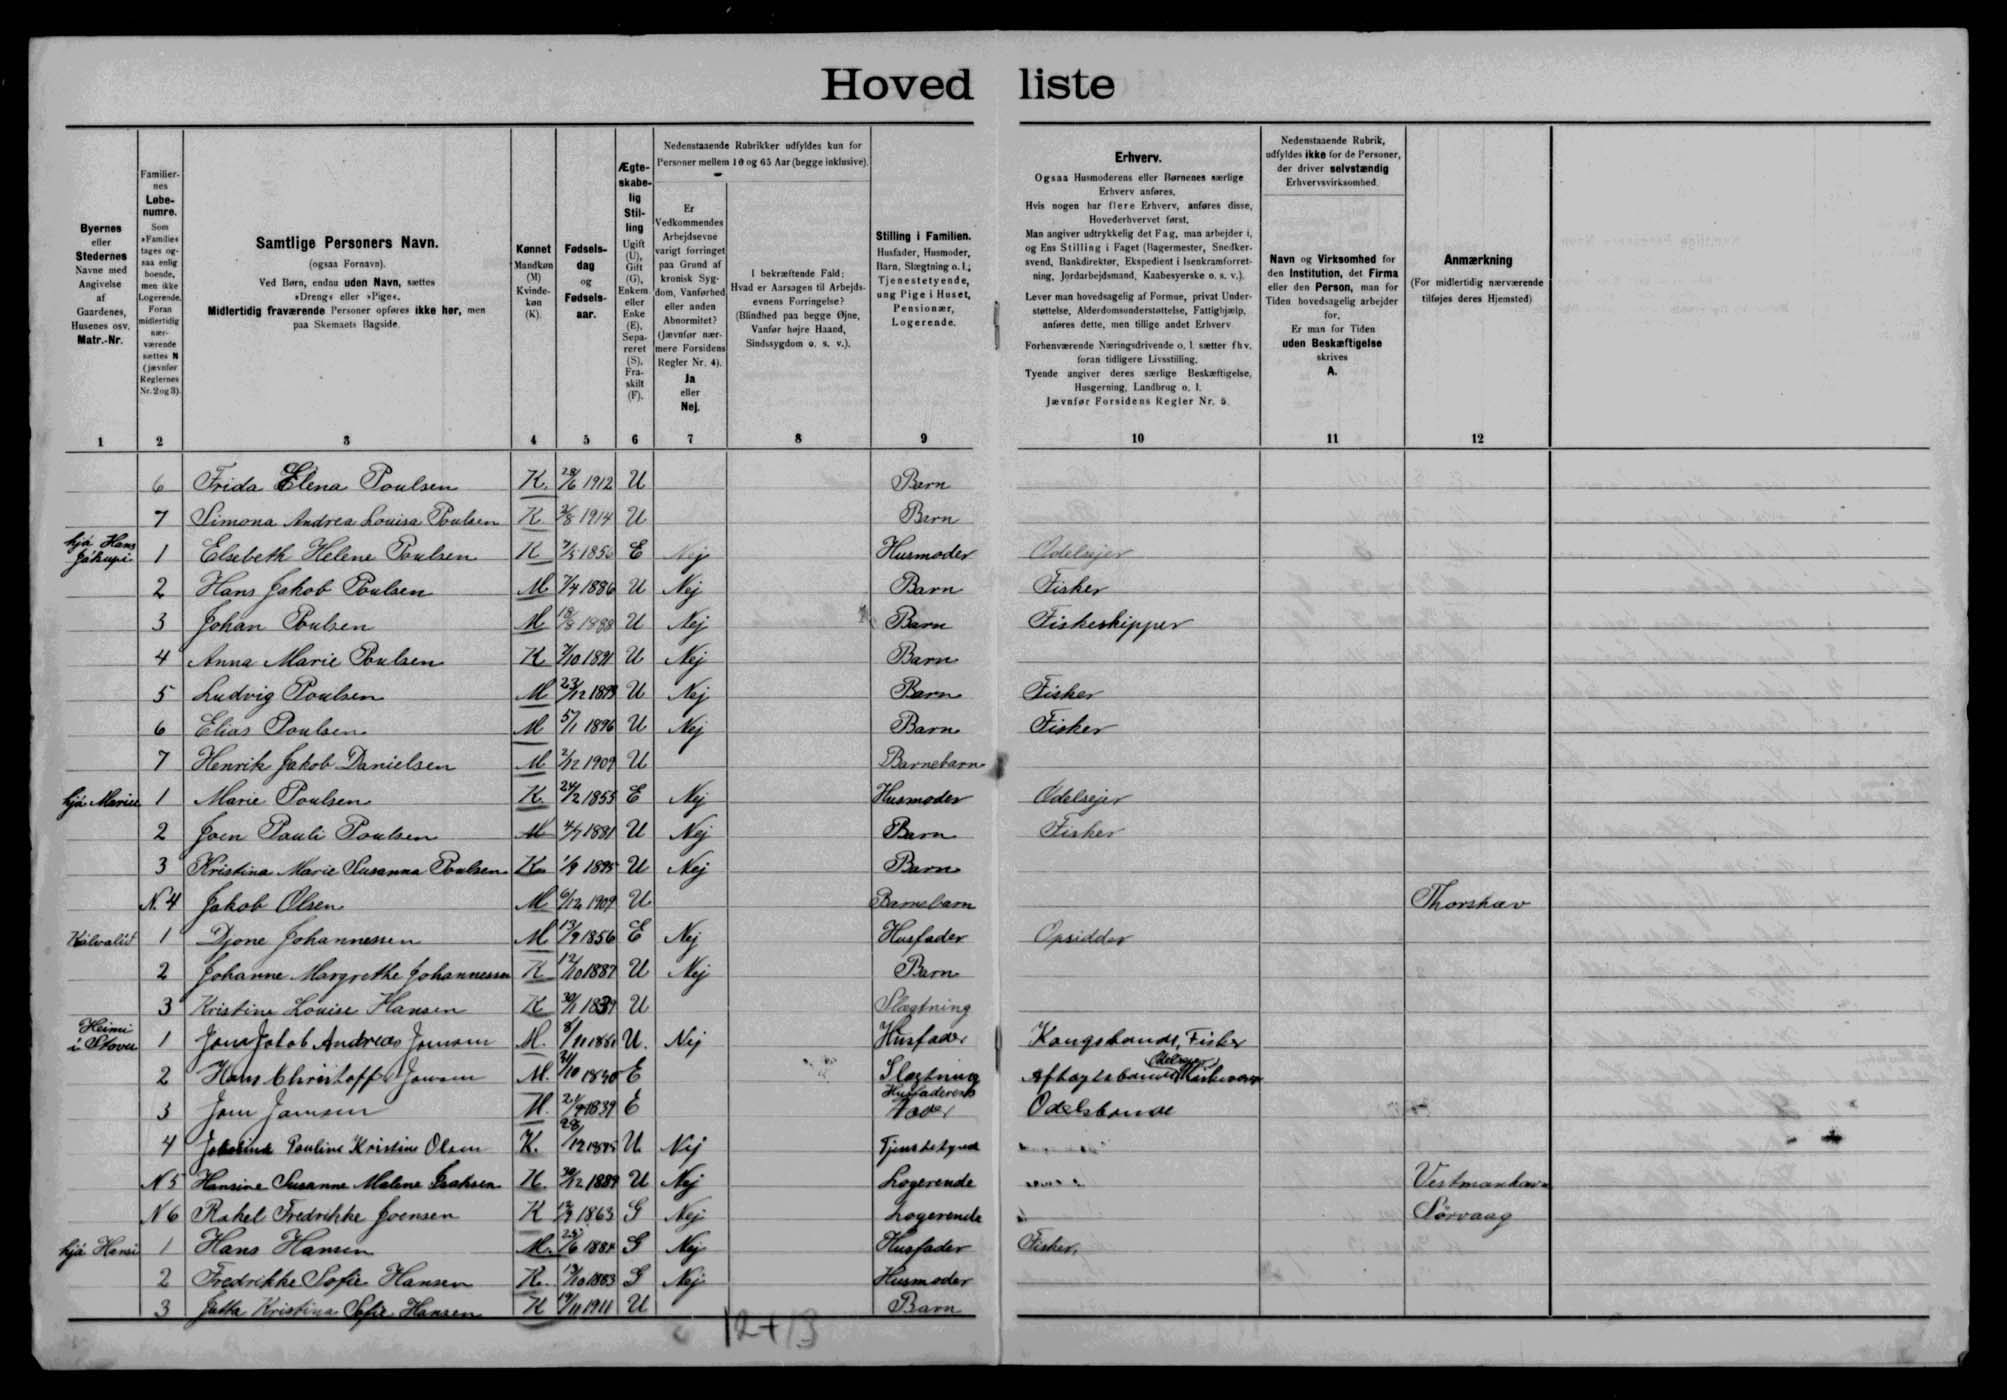 Hoved liste
Byernes
eller
Stedernes
Navne med
Angivelse
af
Gaardenes,
Husenes osv.
Matr.-Nr.
Familier-
nes
Løbe-
numre.
Som
»Familie«
tages og-
saa enlig
boende,
men ikke
Logerende.
Foran
midlertidig
nær-
værende
sættes N
(jævnfør
Reglernes
Nr. 2 og 3).
Samtlige Personers Navn.
(ogsaa Fornavn).
Ved Børn, endnu uden Navn, sættes
»Dreng« eller »Pige«.
Midlertidig fraværende Personer opføres ikke her, men
paa Skemaets Bagside.
Kønnet
Mandkøn
(M)
Kvinde-
køn
(K).
Fødsels-
dag
og
Fødsels-
aar.
Ægte-
skabe-
lig
Stil-
ling
Ugift
(U),
Gift
(G),
Enkem.
eller
Enke
(E),
Sepa-
reret
(S),
Fra-
skilt
(F).
Nedenstaaende Rubrikker udfyldes kun for
Personer mellem 16 og 65 Aar (begge inklusive).
Er
Vedkommendes
Arbejdsevne
varigt forringet
paa Grund af
kronisk Syg-
dom, Vanførhed
eller anden
Abnormitet?
(Jævnfør nær-
mere Forsidens
Regler Nr. 4).
Ja
eller
Nej.
I bekræftende Fald:
Hvad er Aarsagen til Arbejds-
evnens Forringelse?
(Blindhed paa begge Øjne,
Vanfør højre Haand,
Sindssygdom o. s. v.).
Stilling i Familien.
Husfader, Husmoder,
Barn, Slægtning o. l.;
Tjenestetyende,
ung Pige i Huset,
Pensionær,
Logerende.
Erhverv.
Ogsaa Husmoderens eller Børnenes særlige
Erhverv anføres.
Hvis nogen har flere Erhverv, anføres disse,
Hovederhvervet først.
Man angiver udtrykkelig det Fag, man arbejder i,
og Ens Stilling i Faget (Bagermester, Snedker-
svend, Bankdirektør, Ekspedient i Isenkramforret-
ning, Jordarbejdsmand, Kaabesyerske o. s. v.).
Lever man hovedsagelig af Formue, privat Under-
støttelse, Alderdomsunderstøttelse, Fattighjælp,
anføres dette, men tillige andet Erhverv
Forhenværende Næringsdrivende o. l. sætter fhv.
foran tidligere Livsstilling.
Tyende angiver deres særlige Beskæftigelse,
Husgerning, Landbrug o. l.
Jævnfør Forsidens Regler Nr. 5.
Nedenstaaende Rubrik,
udfyldes ikke for de Personer,
der driver selvstændig
Erhvervsvirksomhed.
Navn og Virksomhed for
den Institution, det Firma
eller den Person, man for
Tiden hovedsagelig arbejder
for.
Er man for Tiden
uden Beskæftigelse
skrives
A.
Anmærkning
(For midlertidig nærværende
tilføjes deres Hjemsted)
1 2 3 4 5 6 7 8 9 10 11 12
6 Frida Elena Poulsen K. 28/6 1912 U Barn
7 Simona Andrea Louisa Poulsen K 2/8 1914 U Barn
hjá Hans Jákupi 1 Elsebeth Helene Poulsen K E Nej Husmoder Odelsejer
2 Hans Jakob Poulsen M 7/4 1886 U Nej Barn Fisker
3 Johan Poulsen M 18/8 1888 U Nej Barn Fiskeskipper
4 Anna Marie Poulsen K 7/10 1891 U Nej Barn
5 Ludvig Poulsen M 23/12 1893 U Nej Barn Fisker
6 Elias Poulsen M 5/1 1896 U Nej Barn Fisker
7 Henrik Jakob Danielsen M 2/12 1909 U Barnebarn
hjá Mariu 1 Marie Poulsen K. 24/2 1855 E Nej Husmoder Odelsejer
2 Joen Pauli Poulsen M 4/7 1881 U Nej Barn Fisker
3 Kristina Marie Susanna Poulsen K 1/9 1895 U Nej Barn
N. 4 Jakob Olsen M 6/12 1909 U Barnebarn Thorshav
1 Djone Johannessen M 13/9 1856 E Nej Husfader Opsidder
2 Johanne Margrethe Johannessen K 12/10 1887 U Nej Barn
3 Kristine Louise Hansen K 30/1 1839 U Slægtning
Heimi i Stovu 1 Jens Jakob Andreas Joensen M. U. Nej Husfader Kongsbonde, Fisker
2 Hans Christoffer Joensen M. 31/10 1830 E Slægtning Aftægtsbonde Odelsejer
3 Joen Joensen M. 21/9 1839 E Husfaderens Fader Odelsbonde
4 Pauline Kristine Olsen K. 28/12 1895 U Nej Tjenestetyende
N 5 Hansine Susanne Malene Isaksen K 30/12 1889 U Nej Logerende Vestmanhavn
N 6 Rakel Fredrikke Joensen K 12/9 1863 G Nej Logerende Sörvaag
hjá Hansi 1 Hans Hansen M. 25/6 1884 G Nej Husfader Fisker.
2 Fredrikke Sofie Hansen K. 13/10 1883 G Nej Husmoder
3 Jutta Kristina Sofie Hansen K 19/11 1911 U Barn
12+13